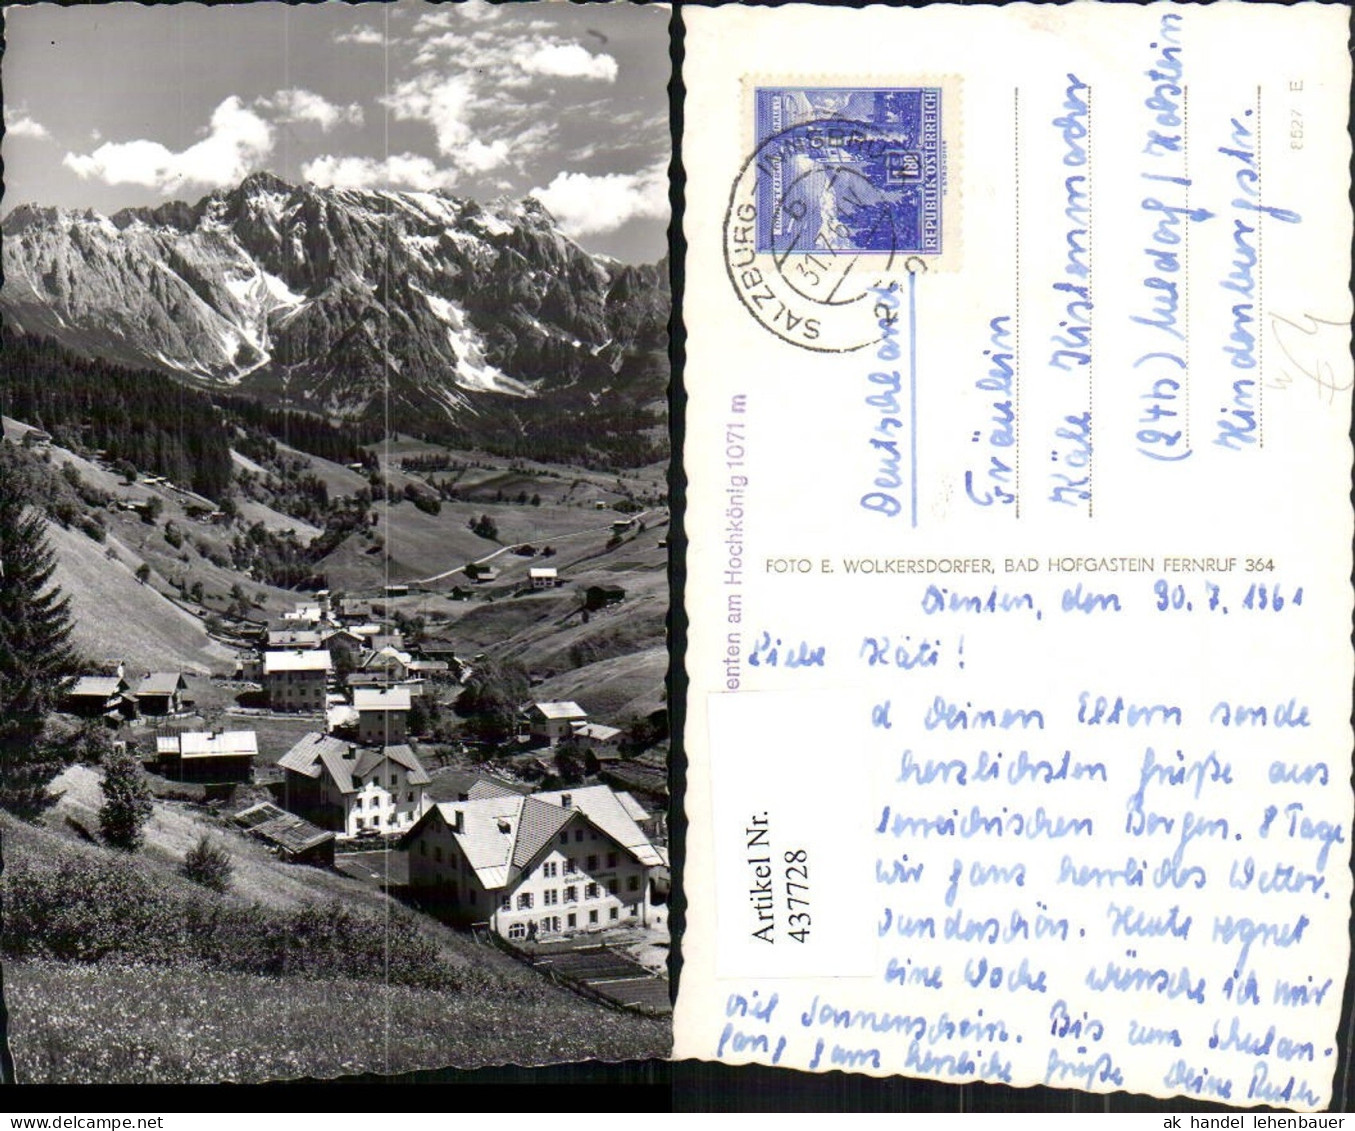 SALZBURG-INNSBRUCK
31.7.61
REPUBLIK ÖSTERREICH
1.80
Deutschland
Fräulein
Käte Kistenmacher
(24b) Meldorf / Holstein
Hindenburgstr.
8527 E
enten am Hochkönig 1071 m
FOTO E. WOLKERSDORFER, BAD HOFGASTEIN FERNRUF 364
Dienten, den 30. 7. 1961
Liebe Käti!
d Deinen Eltern sende
herzlichsten Grüße aus
terreichischen Bergen. 8 Tage
wir ganz herrliches Wetter.
underschön. Heute regnet
eine Woche wünsche ich mir
viel Sonnenschein. Bis zum Schulan-
fang ganz herzliche Grüße Deine Ruth
Artikel Nr.
437728
ak handel lehenbauer